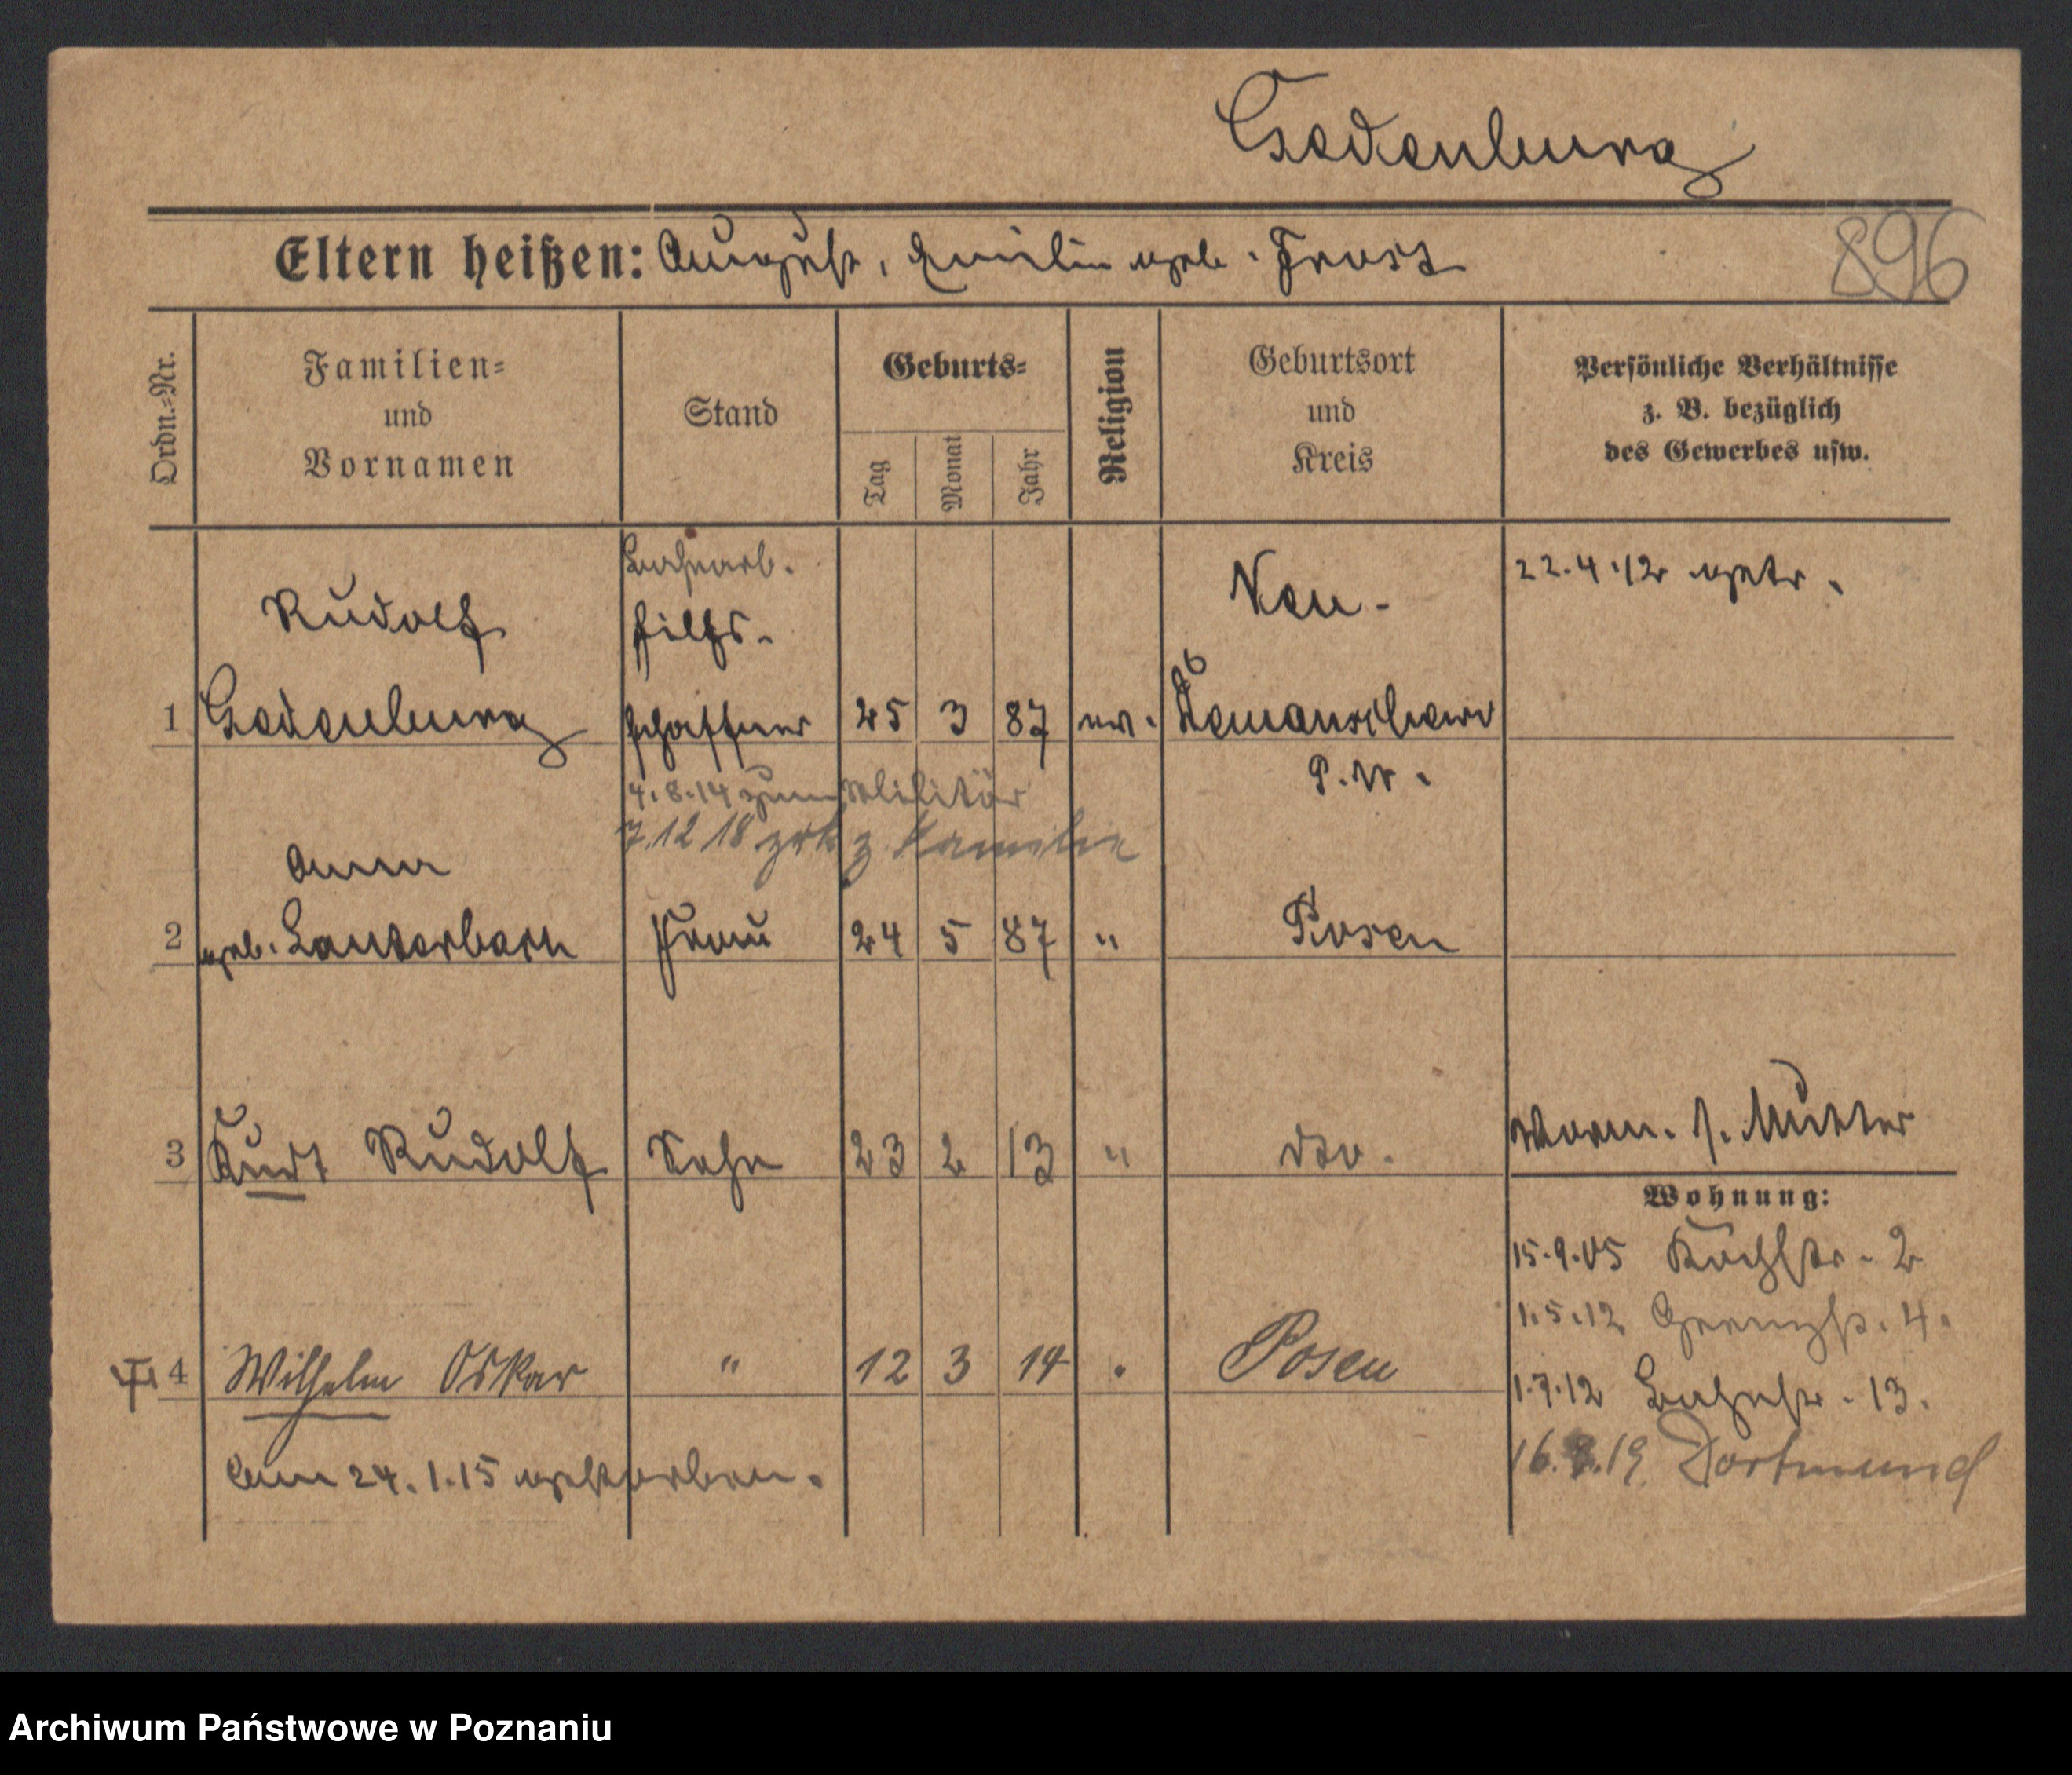 Gedenburg
Eltern heißen: August, Emilie geb. Frost
896
Ordn.-Nr.
Familien- und Vornamen
Stand
Geburts-
Tag
Monat
Jahr
Religion
Geburtsort und Kreis
Persönliche Verhältnisse
z. B. bezüglich
des Gewerbes usw.
Bahnarb.
Rudolf
Hilfs-
Neu-
22.4.12 getr.
1 Gedenburg schaffner 25 3 87 ev.
P.
4.8.14 zum Militär
7.12 18 zrk z Familie
Anna
2 geb. Lauterbach Frau 24 5 87 " Posen
3 Kurt Rudolf Sohn 23 2 13 " dto.
Vorm. s. Mutter
Wohnung:
15.9.05 2
1.5.12 4.
4 Wilhelm Oskar " 12 3 14 . Posen
1.7.12 Bahnstr. 13.
16. .19 Dortmund
am 24.1.15 gestorben.
Archiwum Państwowe w Poznaniu